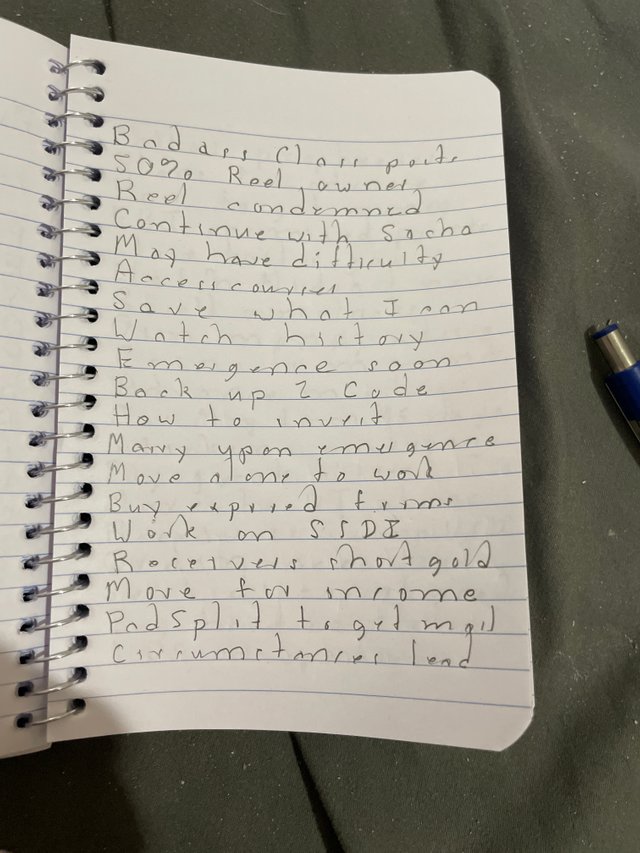 Badass Class posts
50% Reel owner
Reel condemned
Continue with Sacha
May have difficulty
Access courses
Save what I can
Watch history
Emergence soon
Back up 2 Code
How to invest
Marry upon emergence
Move alone to work
Buy expired firms
Work on SSDI
Receivers short gold
Move for income
PadSplit to get mail
Circumstances lead